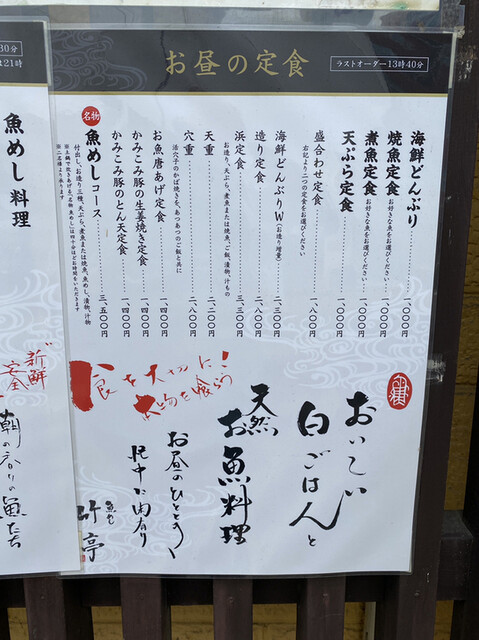 お昼の定食
ラストオーダー13時40分
海鮮どんぶり…一、〇〇〇円
焼魚定食 お好きな魚をお選びください…一、〇〇〇円
煮魚定食 お好きな魚をお選びください…一、〇〇〇円
天ぷら定食…一、〇〇〇円
盛合わせ定食…一、八〇〇円
右記より二つの定食をお選びください
海鮮どんぶりW(お造り増量)…二、三〇〇円
造り定食…二、八〇〇円
浜定食…三、三〇〇円
お造り、天ぷら、煮魚または焼魚、ご飯、漬物、汁もの
天重…二、二〇〇円
穴重…二、八〇〇円
活穴子のかば焼きを、あつあつのご飯と共に
お魚唐あげ定食…一、四〇〇円
かみこみ豚の生姜焼き定食…一、四〇〇円
かみこみ豚のとん天定食…一、四〇〇円
名物
魚めしコース…三、五〇〇円
付出し、お造り三種、天ぷら、煮魚または焼魚、魚めし、漬物、汁物
※二名様より承ります
食を大切に!
本物を喰らう
おいしい
白ごはんと
天然の
お魚料理
お昼のひととき
魚菜
竹亭
30分
は21時
魚めし料理
新鮮
安全
朝のかりの魚たち